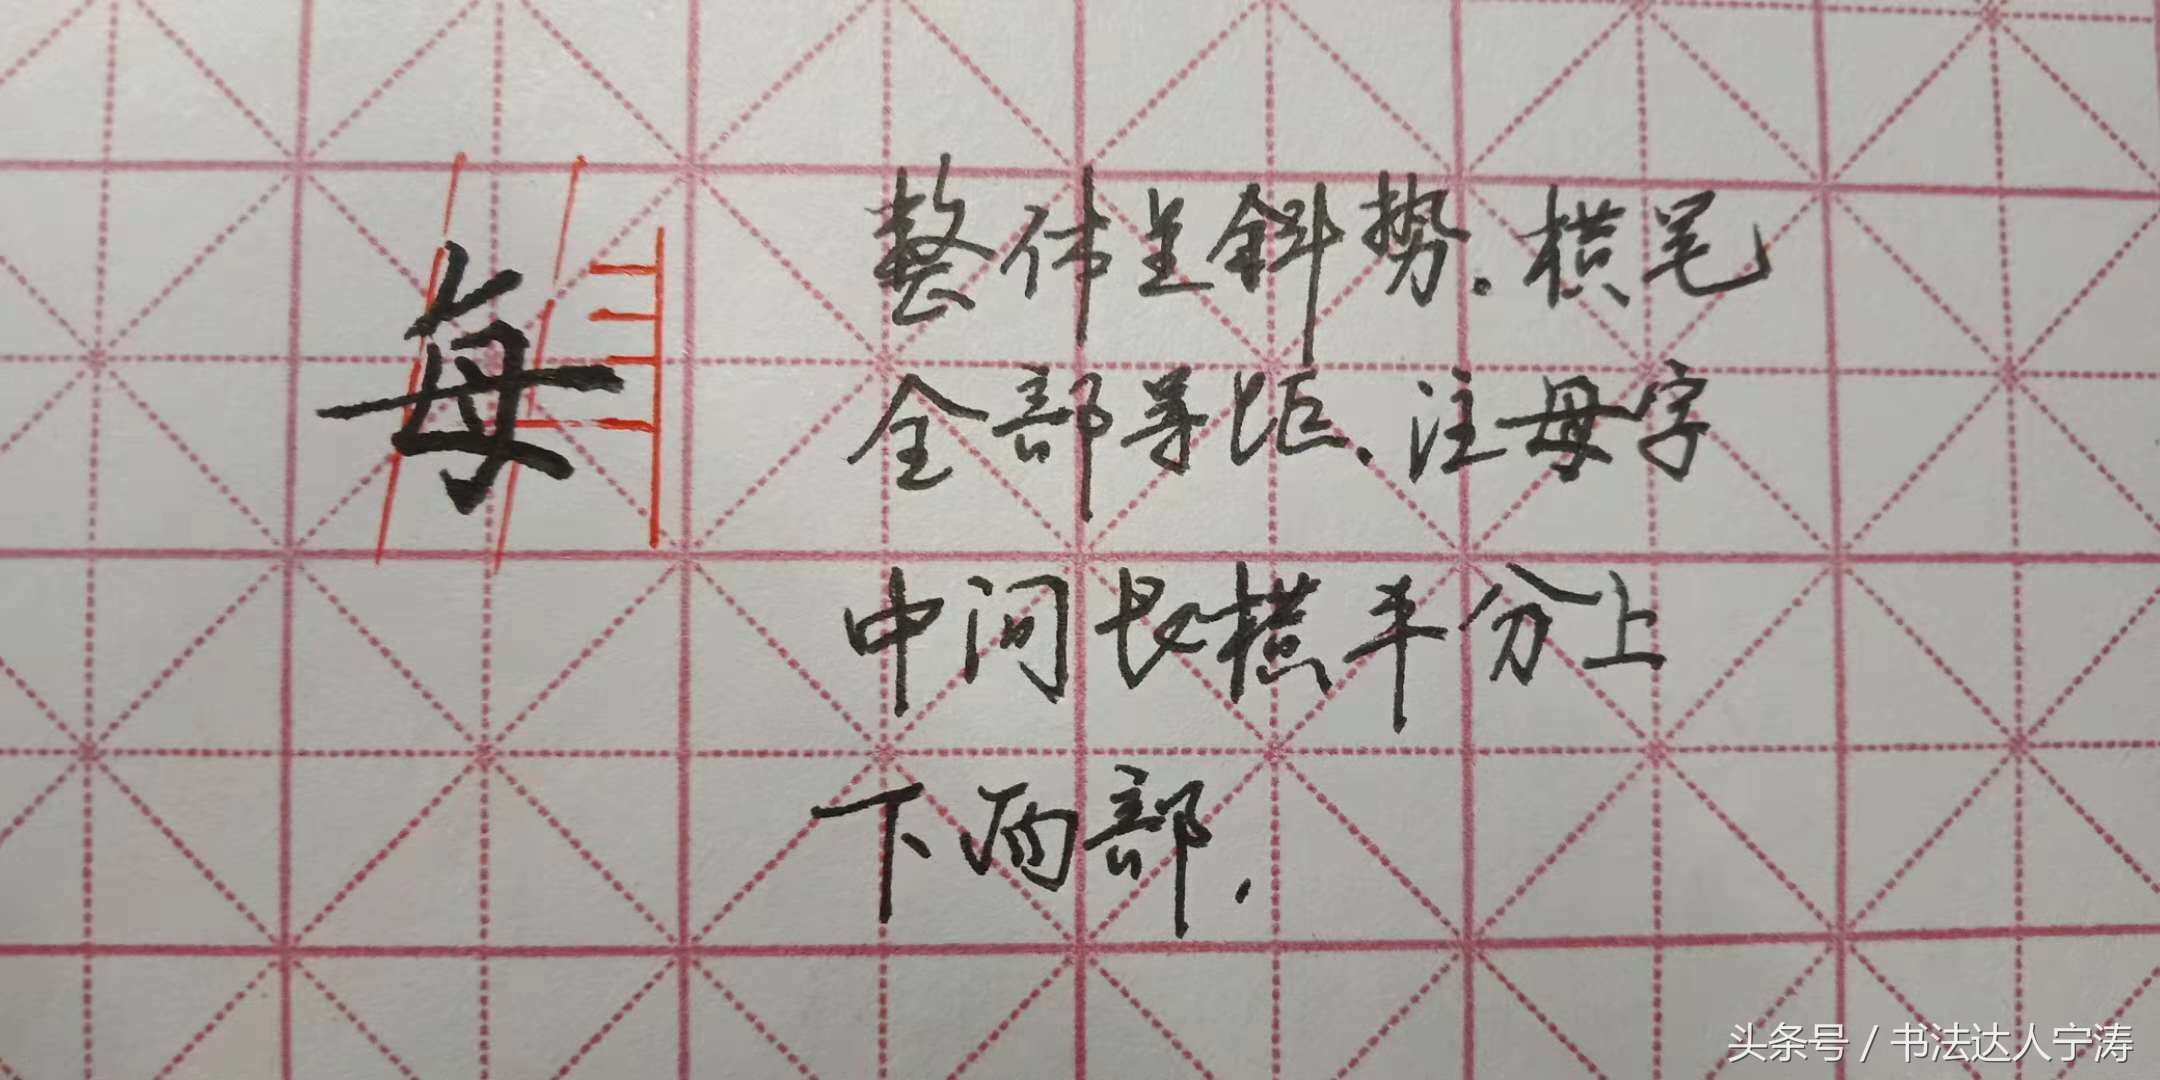 每
整体呈斜势.横笔
全部等距.注母字
中间长横平分上
下两部.
头条号 / 书法达人宁涛